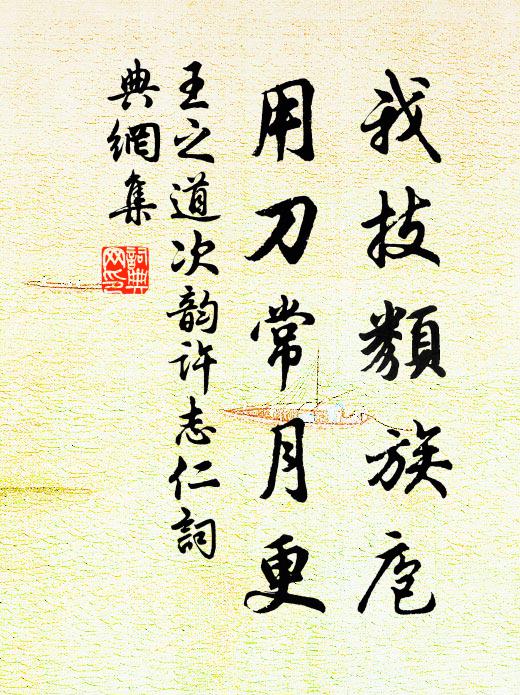 我技類族庖
用刀常月更
王之道次韵许志仁詞
典網集
詞典
网印